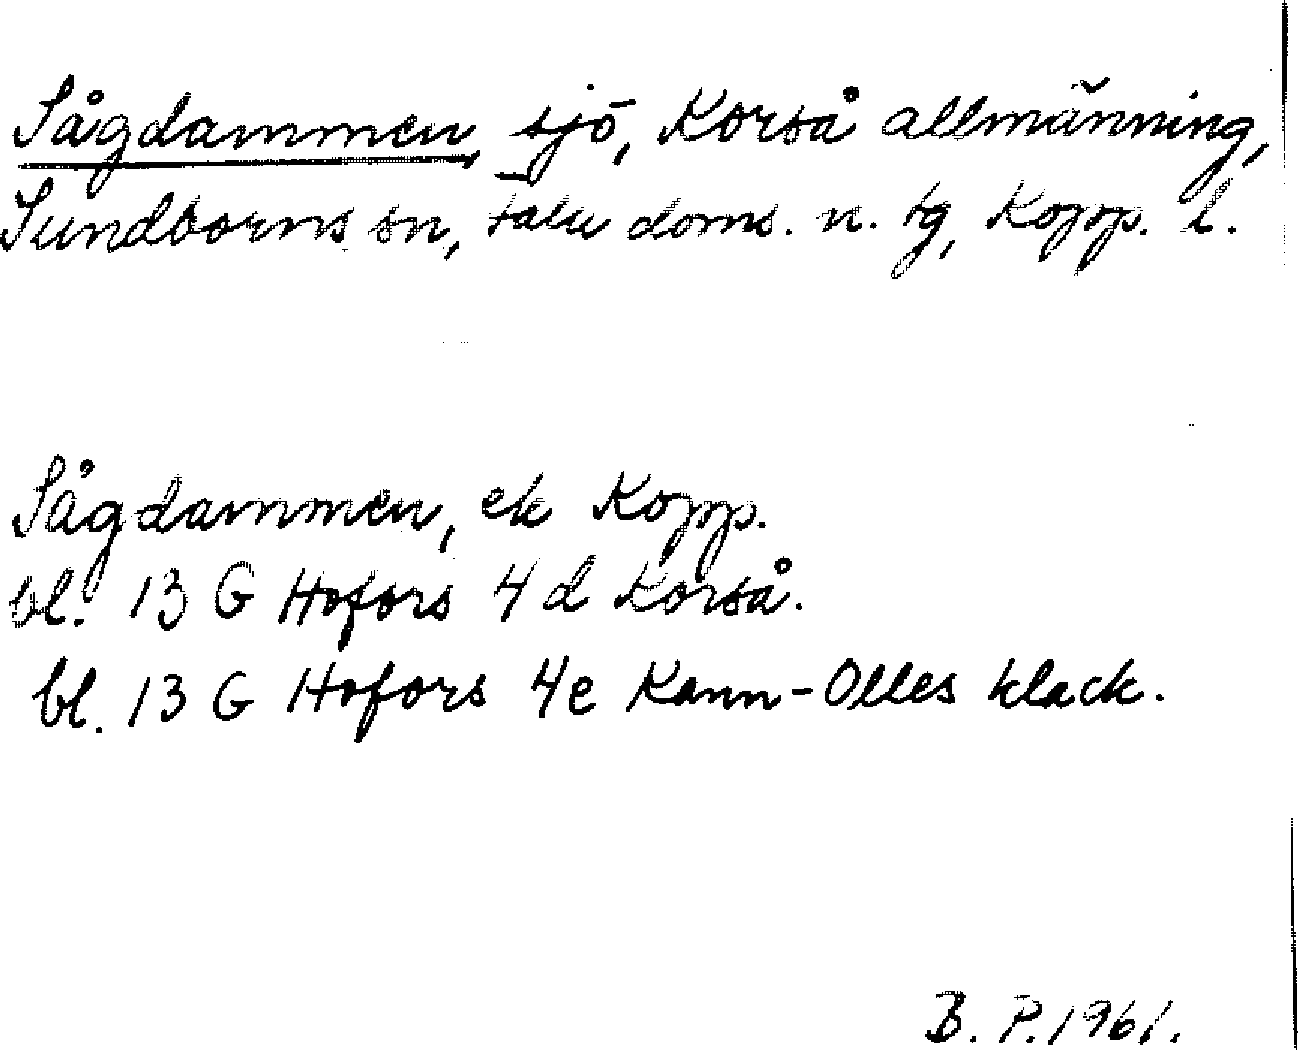 Sågdammen, sjö, Korså allmänning,
Sundborns sn, Falu doms. n. tg, Kopp. l.
Sågdammen, ek Kopp.
bl. 13 G Hofors 4 d Korså.
bl. 13 G Hofors 4e Kann-Olles klack.
B. P. 1961.